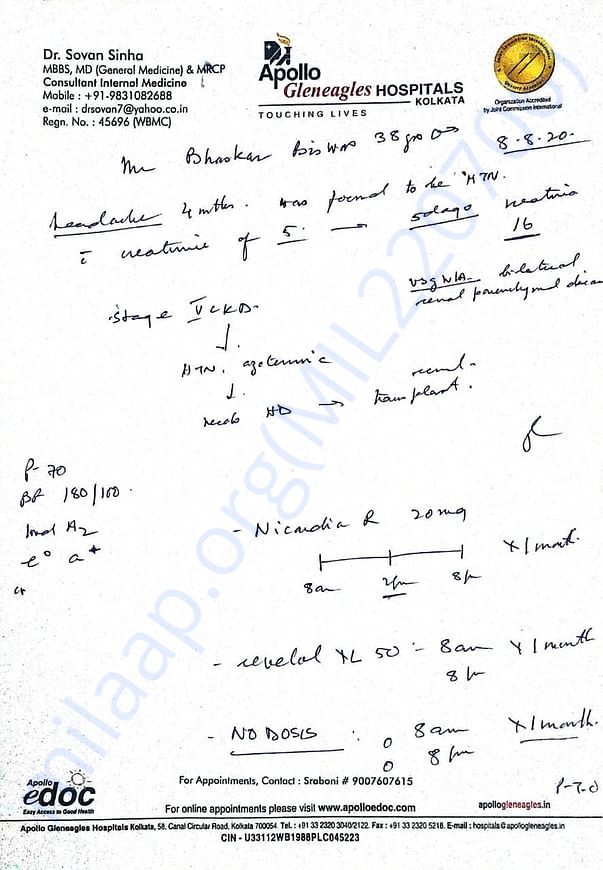 Dr. Sovan Sinha
MBBS, MD (General Medicine) & MRCP
Consultant Internal Medicine
Mobile : +91-9831082688
e-mail : drsovan7@yahoo.co.in
Regn. No. : 45696 (WBMC)
Apollo
Gleneagles HOSPITALS
KOLKATA
TOUCHING LIVES
Organization Accredited
by Joint Commission International
Mr Bhaskar Biswas 38 yrs
8-8-20.
headache 4 mths. was found to be HTN.
c creatinine of 5. → 5 days creatinine
16
USG W/A- bilateral
renal parenchymal disease
Stage V CKD.
↓
HTN, azotemic
↓
needs HD → renal
transplant.
P-70
BP 180/100.
loud A2
- Nicardia R 20mg
x 1 month.
8am 2pm 8pm
- revelol XL 50 :- 8am x 1 month
8pm
- NODOSIS : 8am x 1 month.
8pm
P-T-O
Apollo
edoc
Easy Access to Good Health
For Appointments, Contact : Sraboni # 9007607615
For online appointments please visit www.apolloedoc.com
apollogleneagles.in
Apollo Gleneagles Hospitals Kolkata, 58, Canal Circular Road, Kolkata 700054. Tel. : +91 33 2320 3040/2122. Fax : +91 33 2320 5218. E-mail : hospitals@apollogleneagles.in
CIN - U33112WB1988PLC045223
milaap.org(MIL220708)